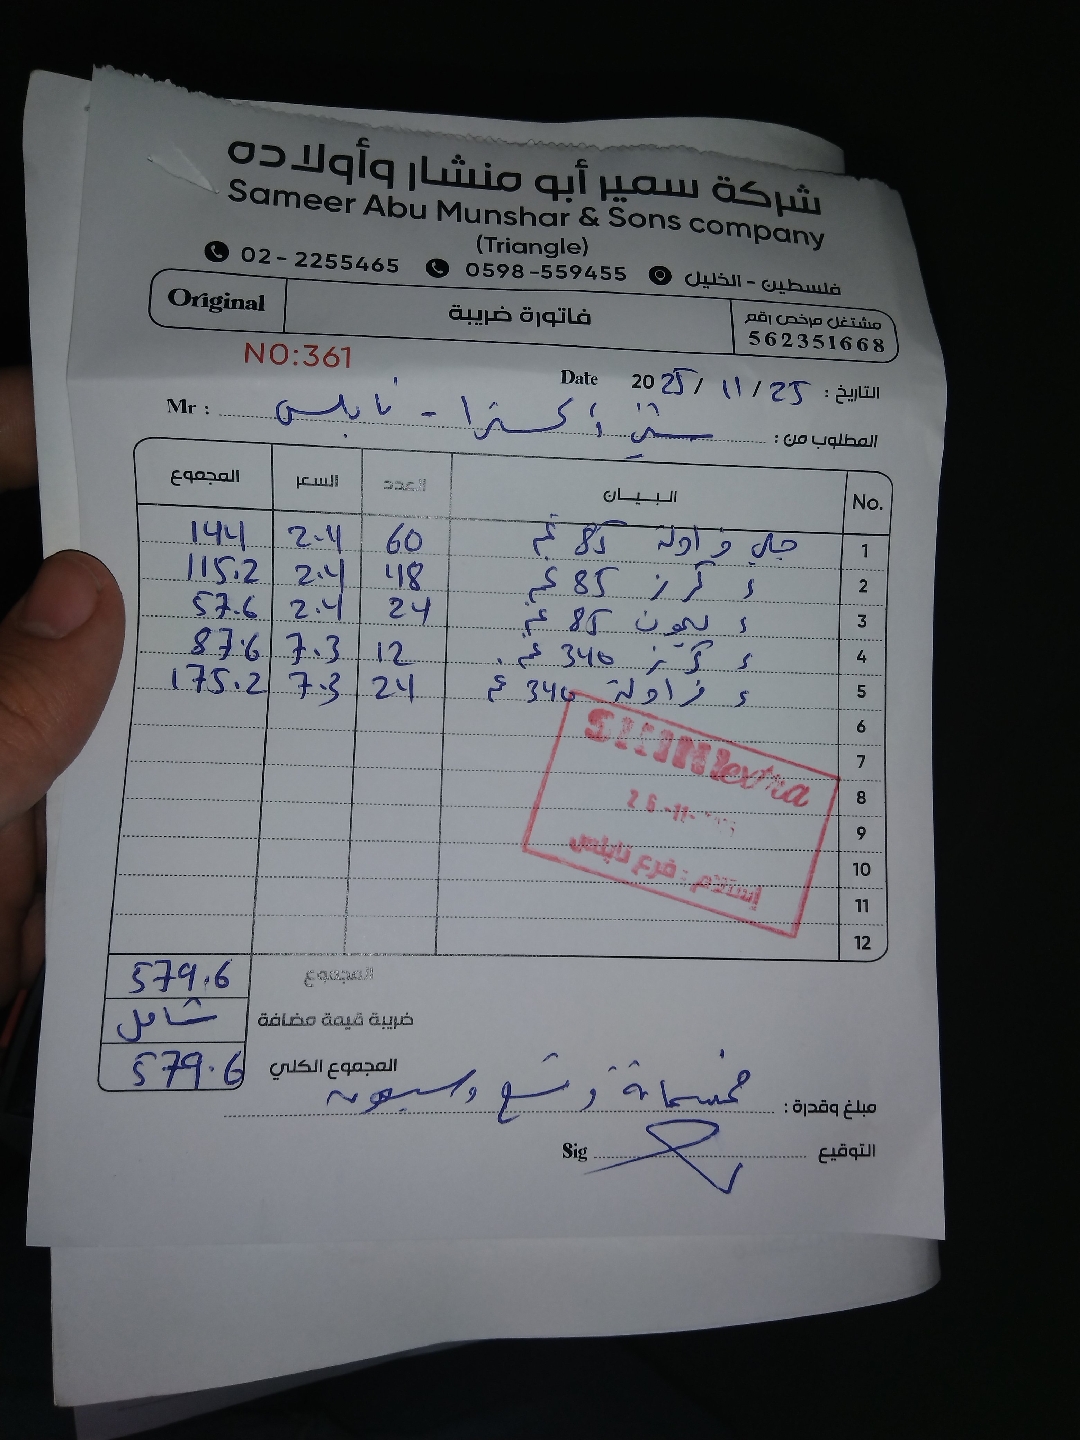 شركة سمير أبو منشار وأولاده
Sameer Abu Munshar & Sons company
(Triangle)
02-2255465 0598-559455 فلسطين - الخليل
Original فاتورة ضريبة مشتغل مرخص رقم 562351668
NO:361
Date 2025/11/25 التاريخ :
Mr : المطلوب من: أكسترا - نابلس
No. البيان العدد السعر المجموع
1 جلي فراولة 85 غم 60 2.4 144
2 ء كرز 85 غم 48 2.4 115.2
3 ء ليمون 85 غم 24 2.4 57.6
4 ء كرز 340 غم 12 7.3 87.6
5 ء فراولة 340 غم 24 7.3 175.2
6
7
8
9
10
11
12
extra
إستلام : فرع نابلس
المجموع 579.6
ضريبة قيمة مضافة شامل
المجموع الكلي 579.6
مبلغ وقدرة : خمسمائة وتسع وسبعون
التوقيع Sig